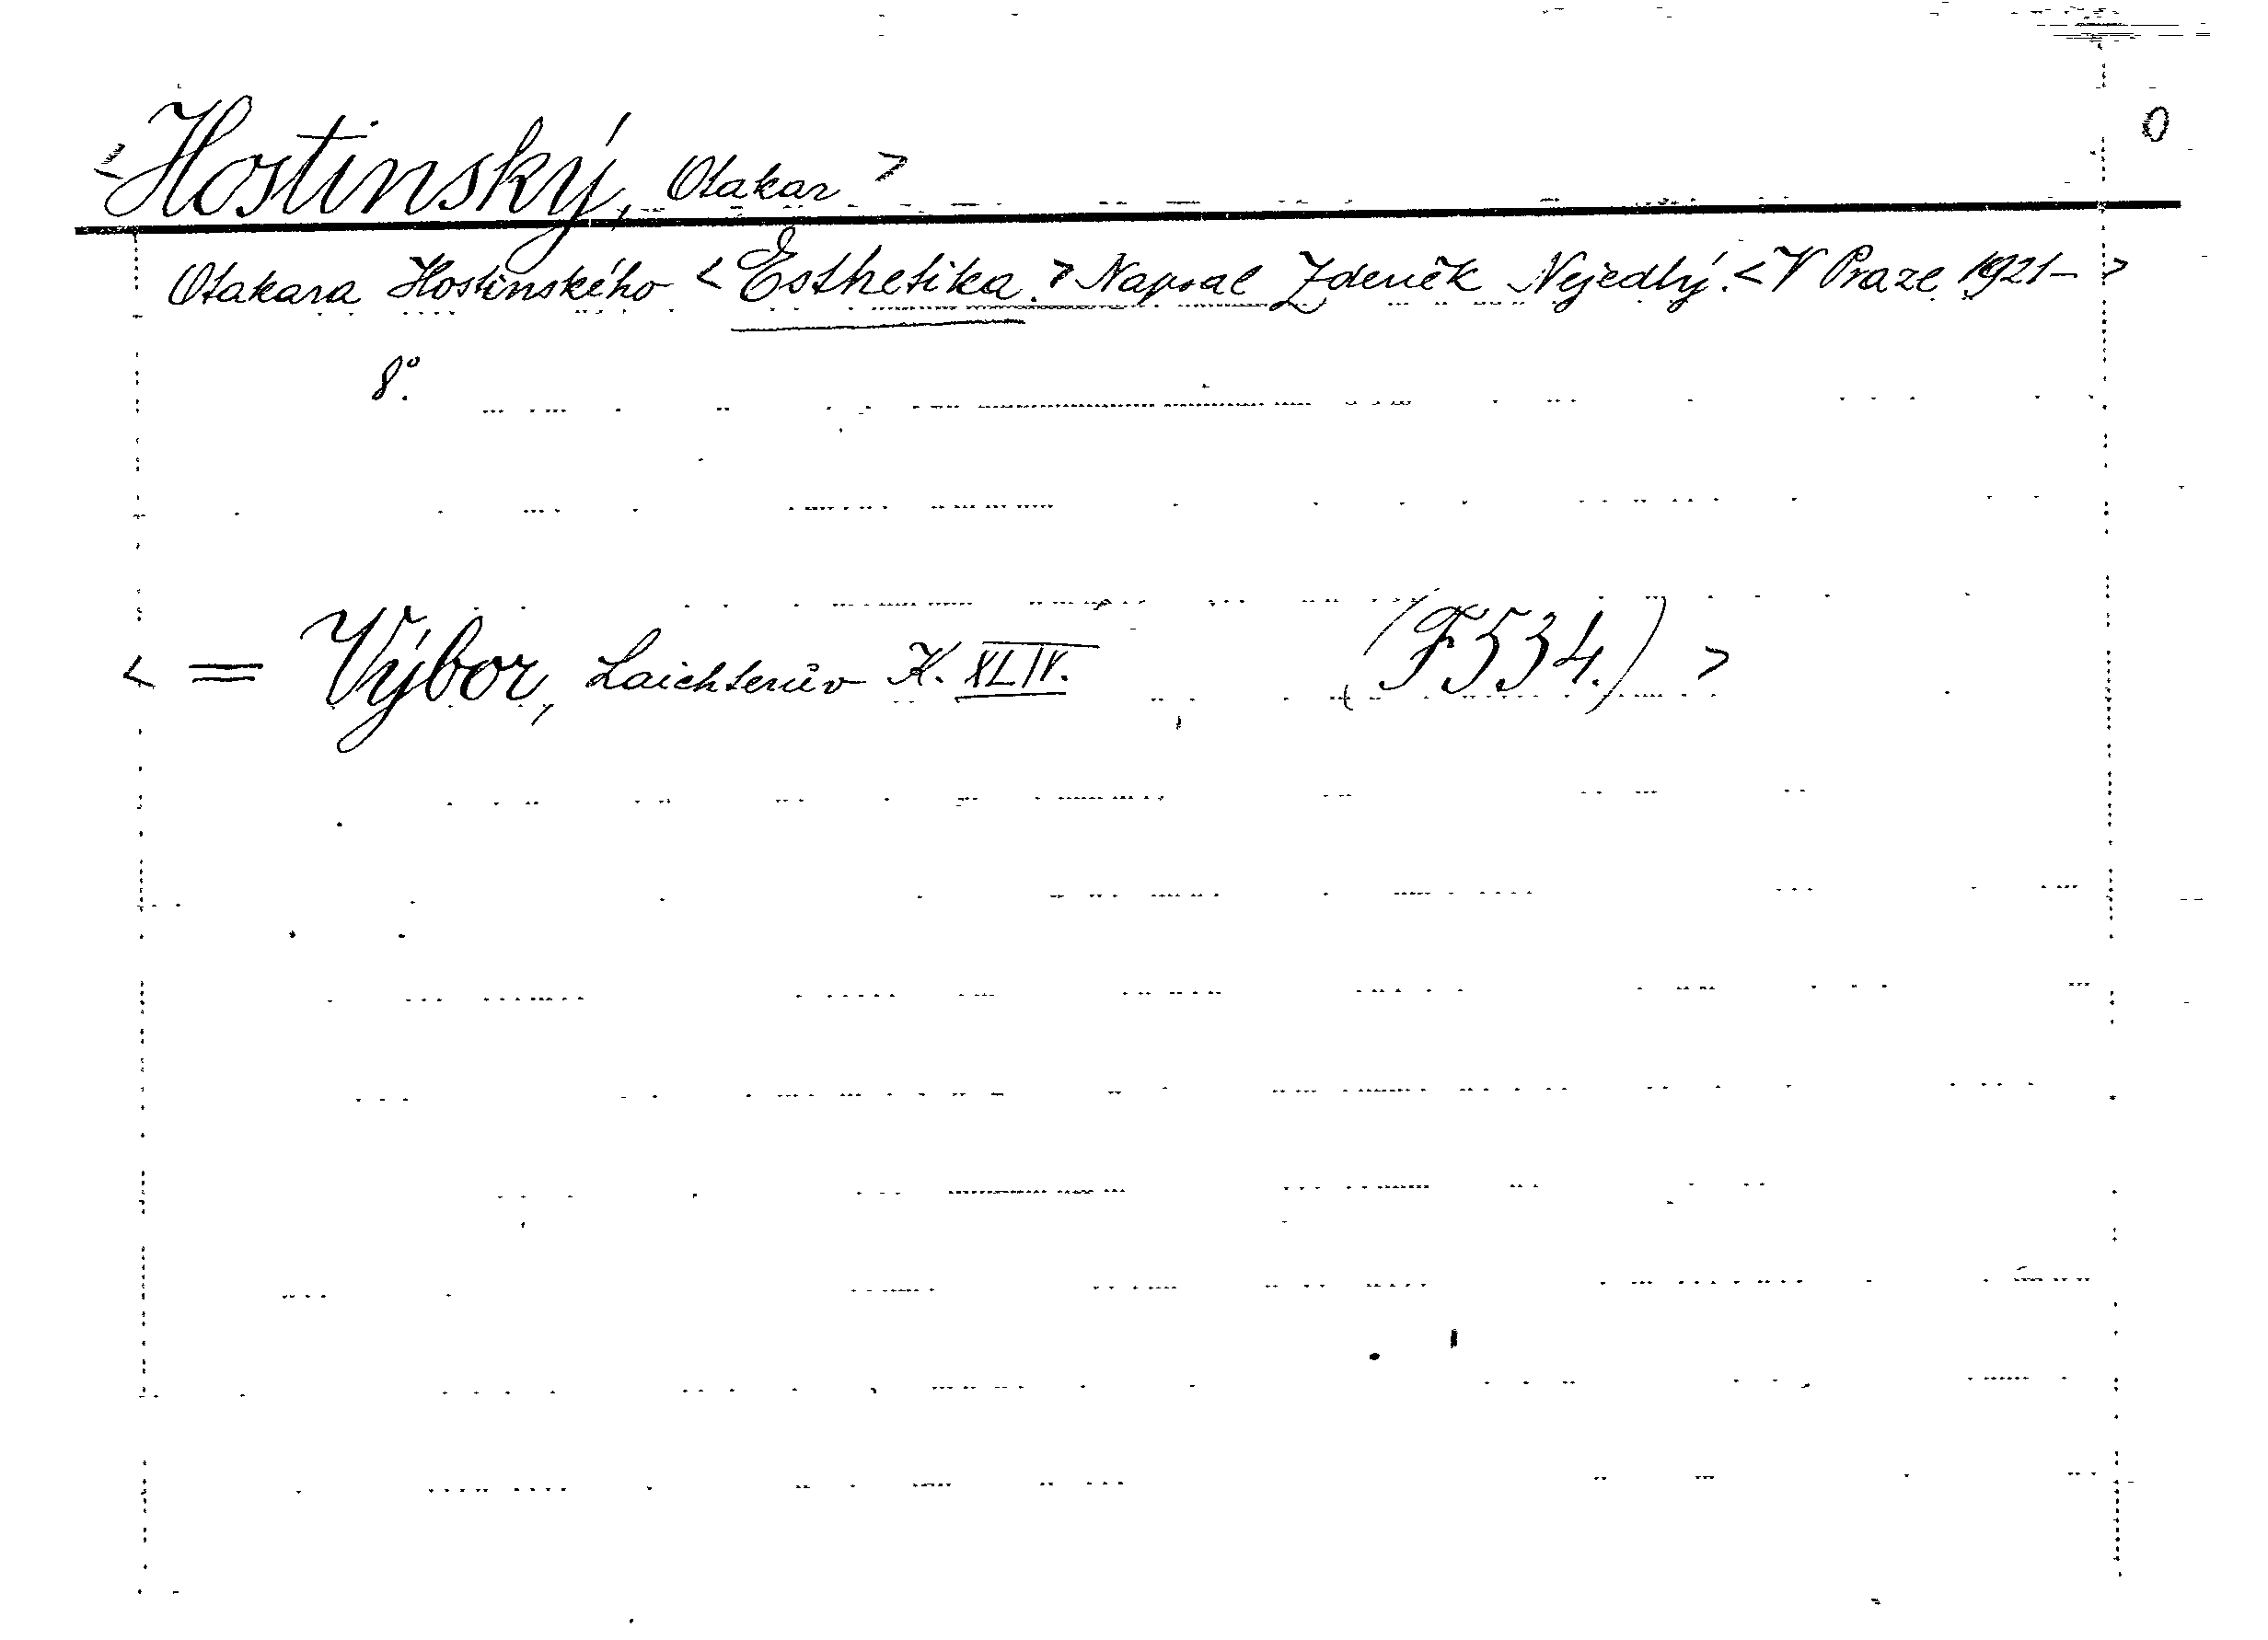 0
<Hostinský, Otakar>
Otakara Hostinského <Esthetika.> Napsal Zdeněk Nejedlý. <V Praze 1921->
8°.
< = Výbor, Laichterův K. XLIV. (F534.) >